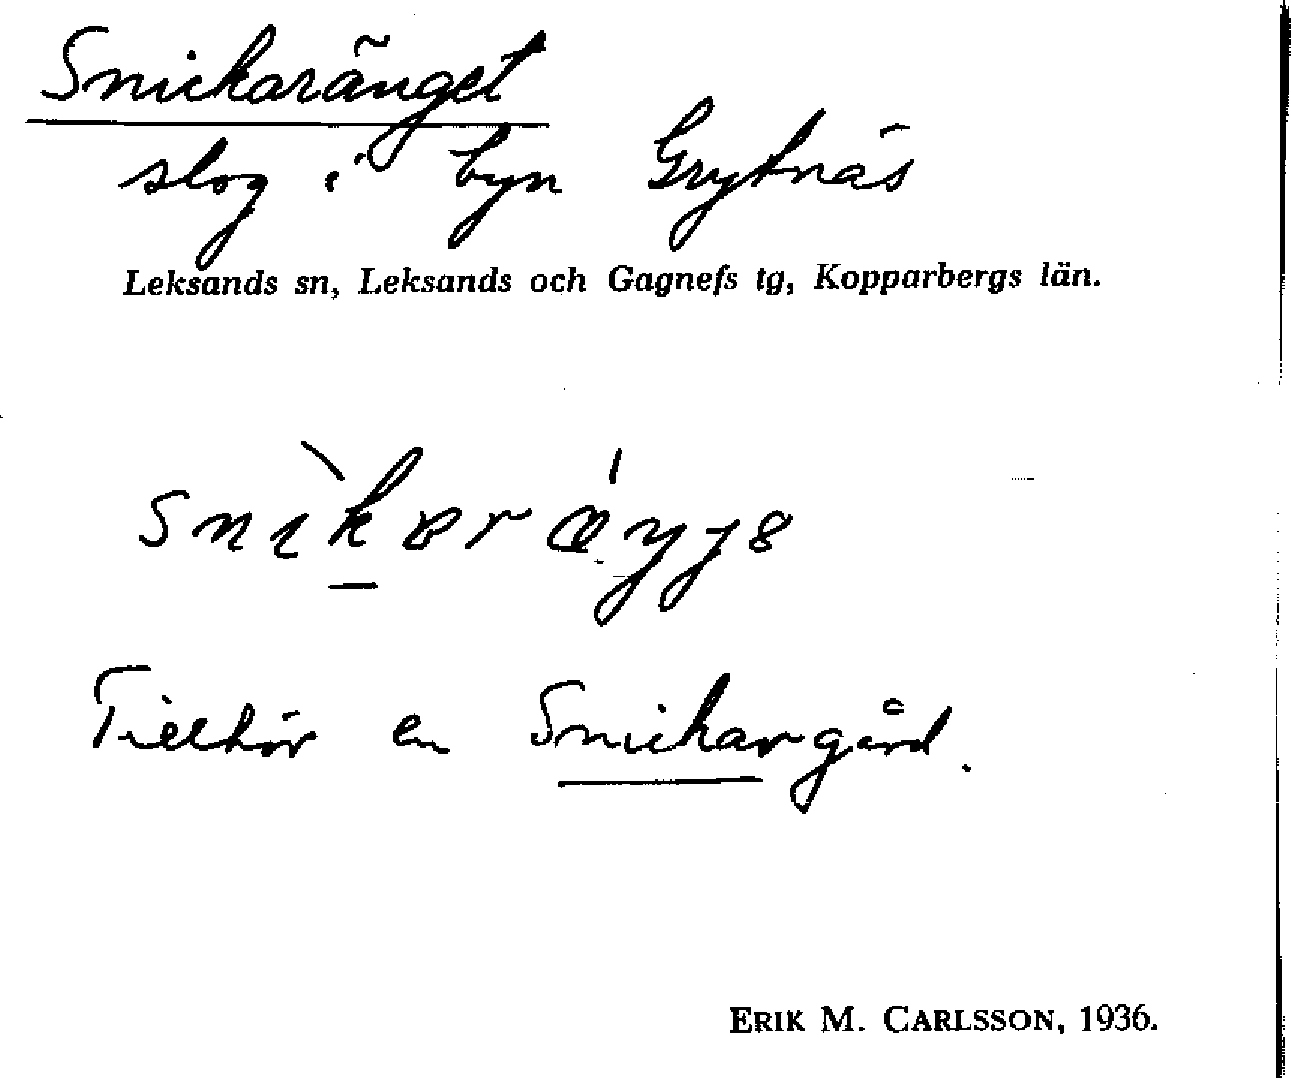 Snickaränget
slog i byn Grytnäs
Leksands sn, Leksands och Gagnefs tg, Kopparbergs län.
Tillhör en Snickargård.
ERIK M. CARLSSON, 1936.